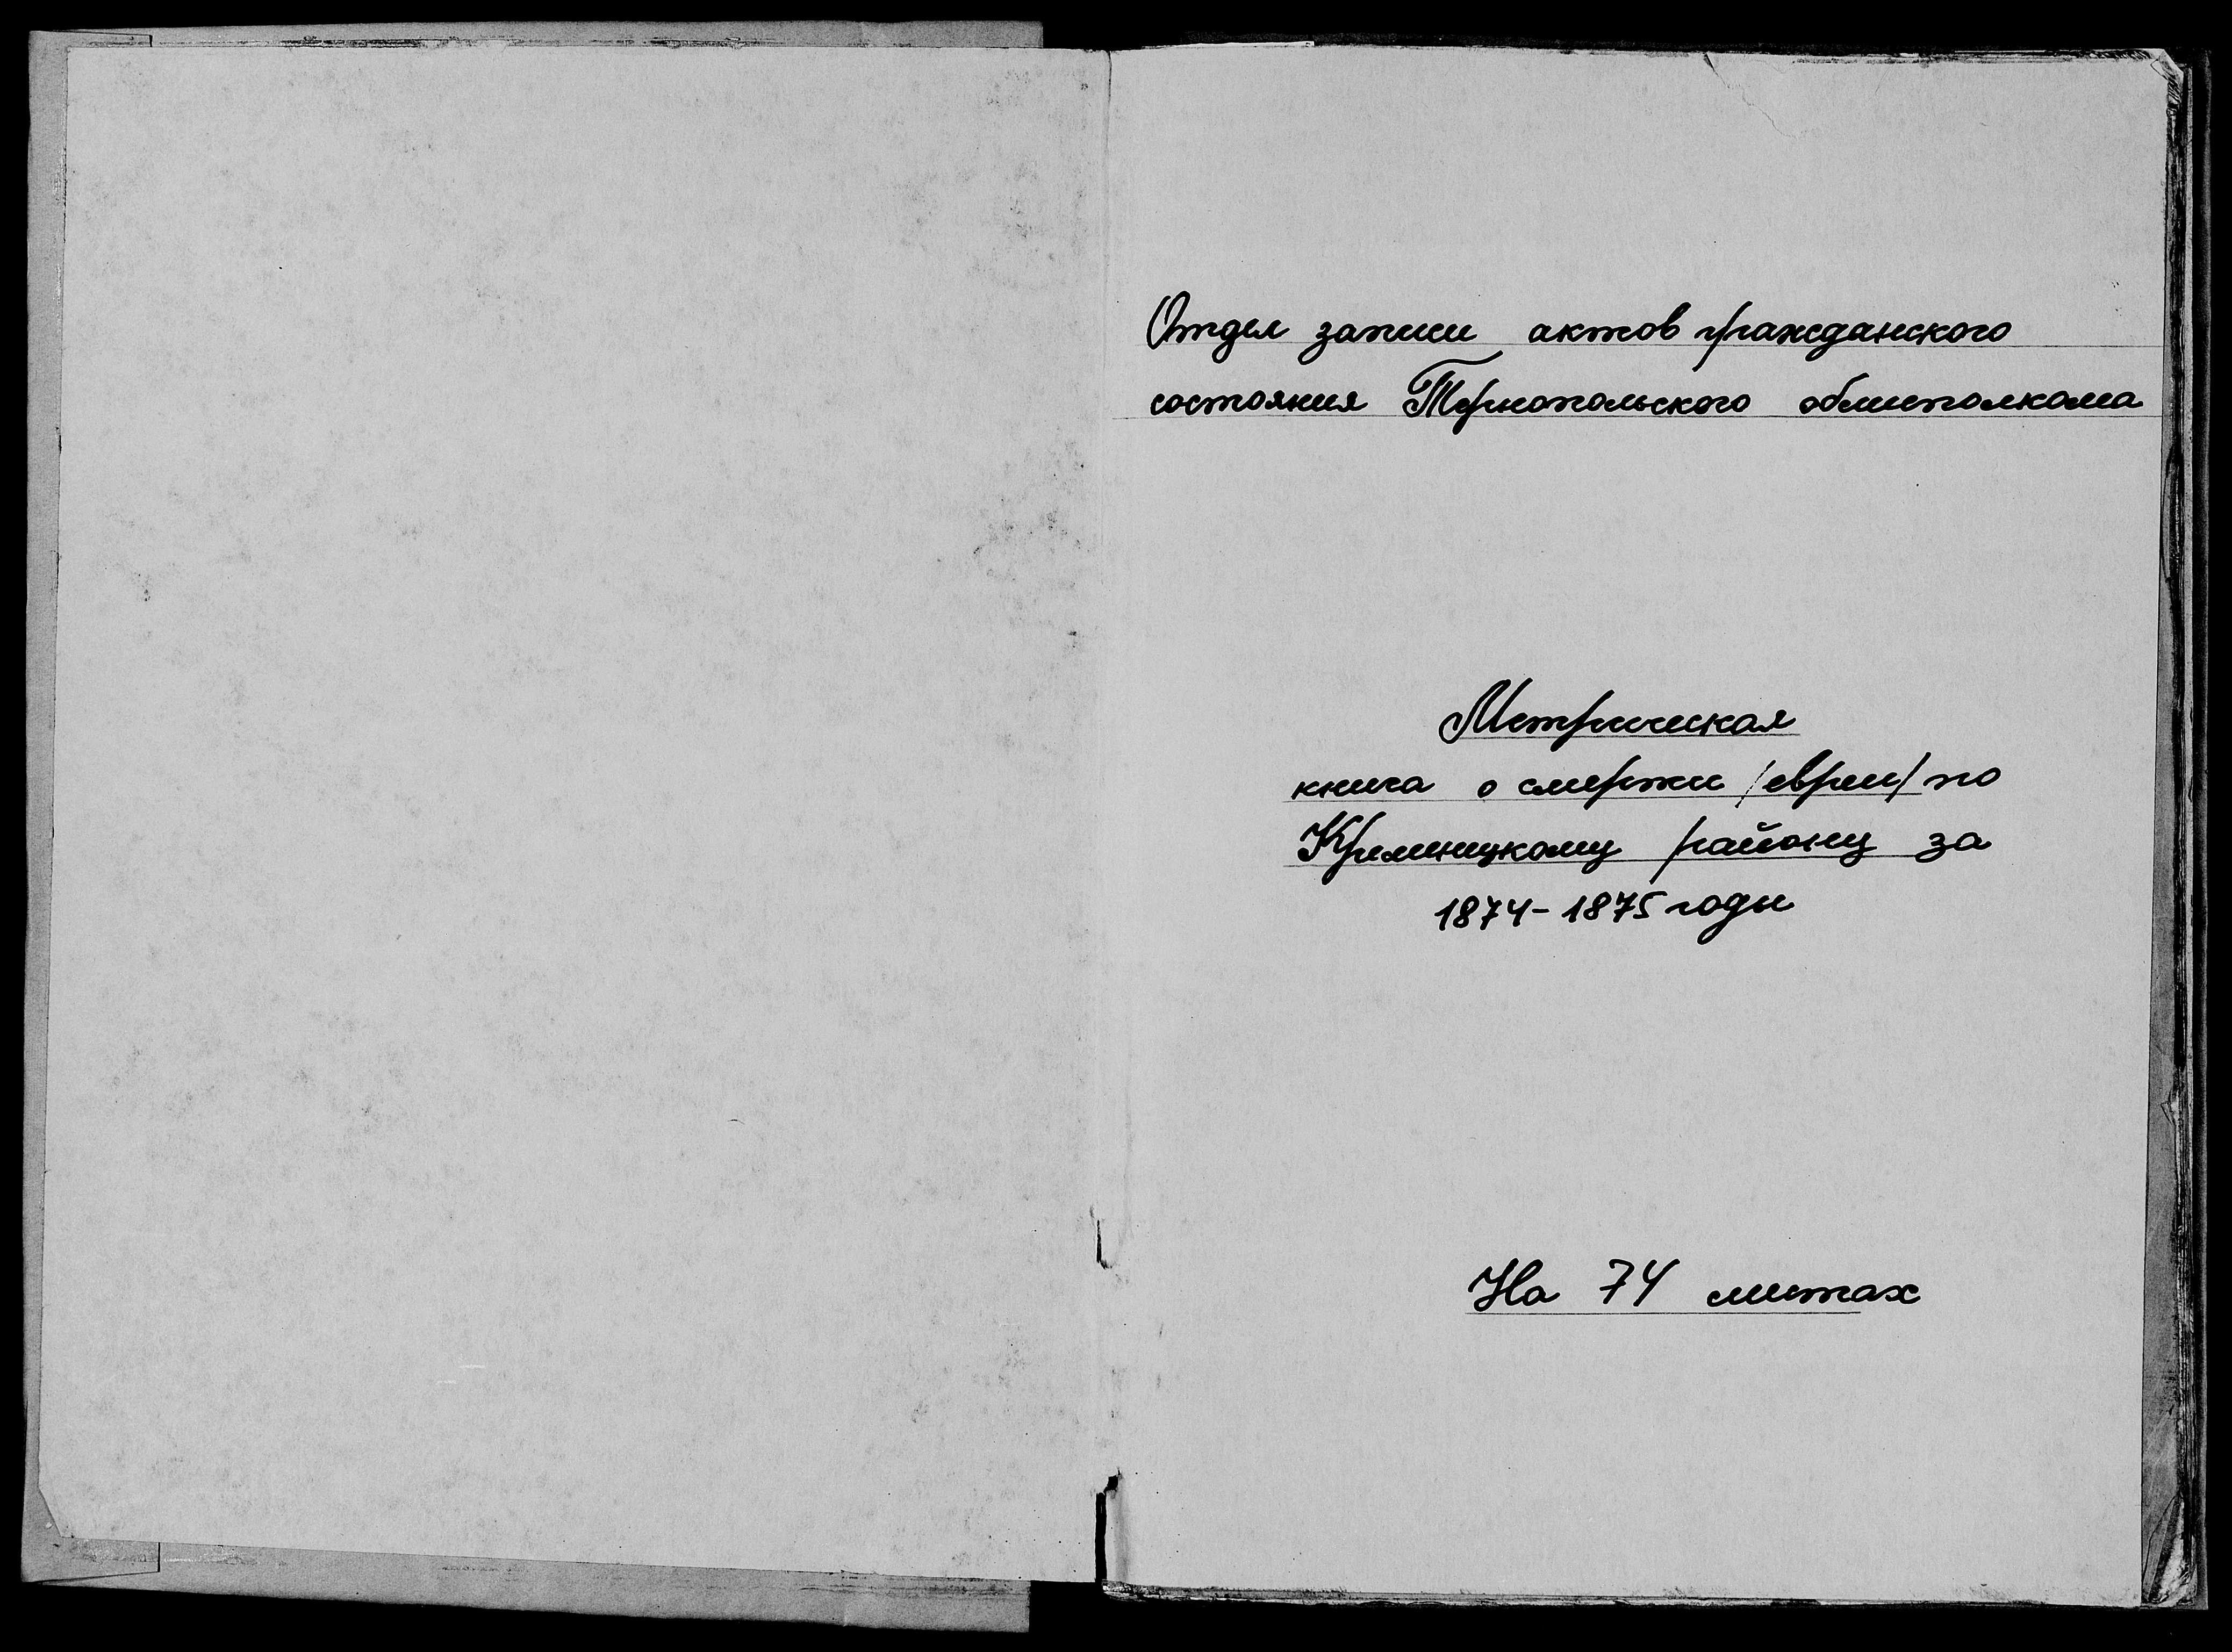 Отдел записи актов гражданского
состояния Тернопольского облисполкома
Метрическая
книга о смерти /евреи/ по
Кременецкому району за
1874-1875 годы
На 74 листах